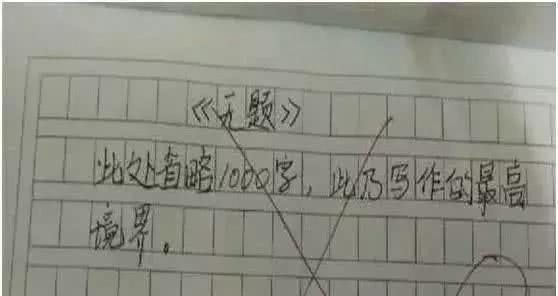 《无题》
此处省略1000字,此乃写作的最高
境界。